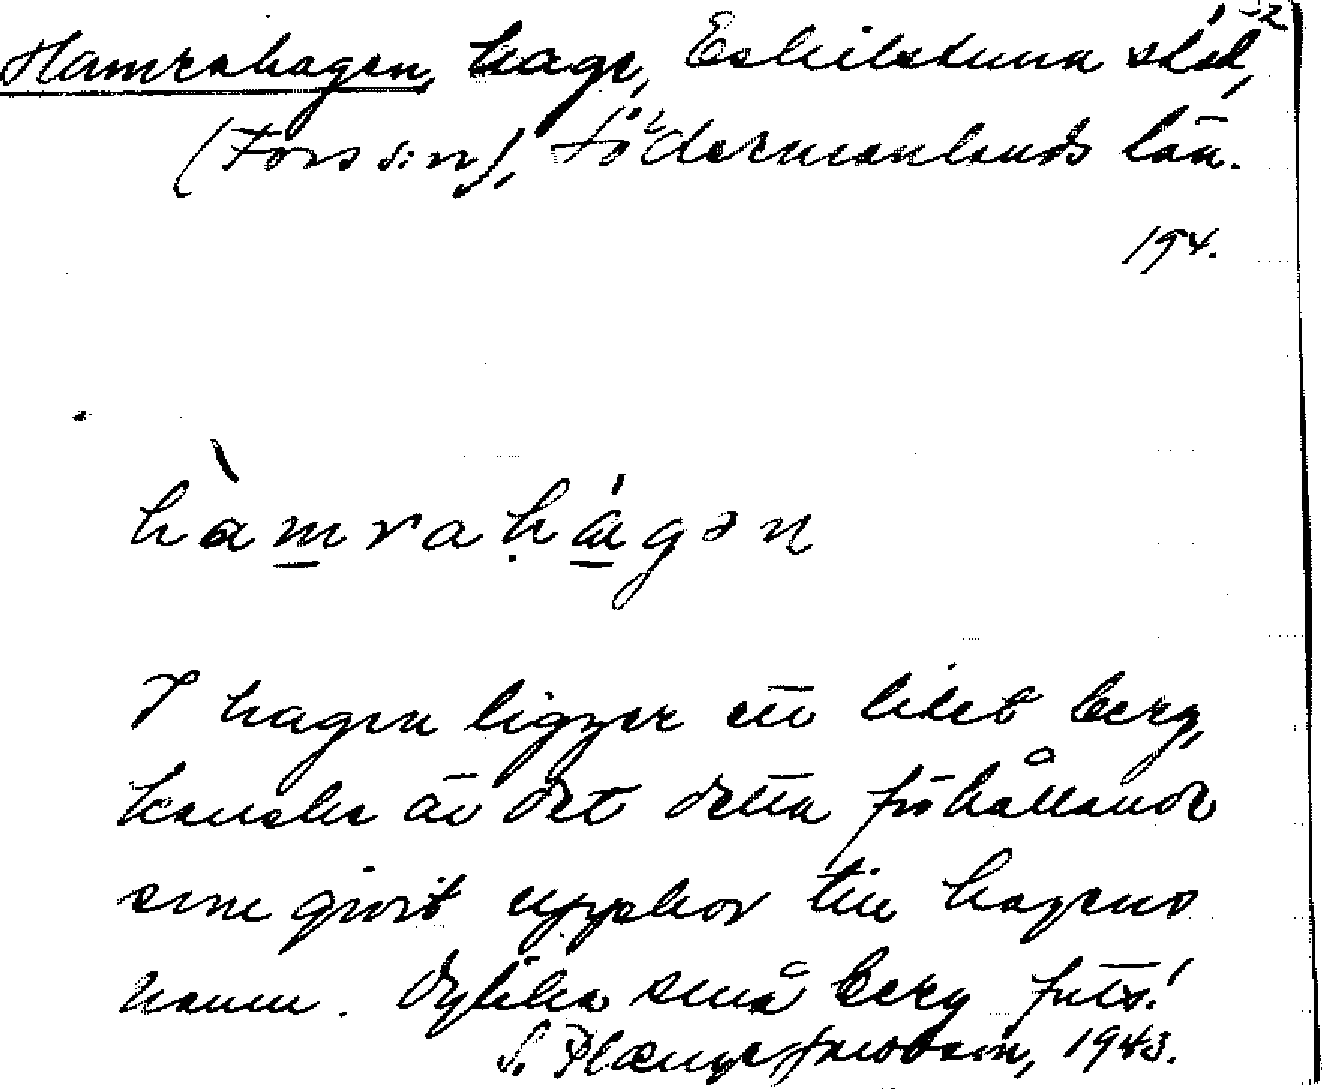 Hamrahagen, hage, Eskilstuna stad,
(Fors sn), Södermanlands län.
194.
hàmrahágən
I hagen ligger ett litet berg,
kanske är det detta förhållande
som givit upphov till hagens
namn. Dylika små berg
S. 1943.